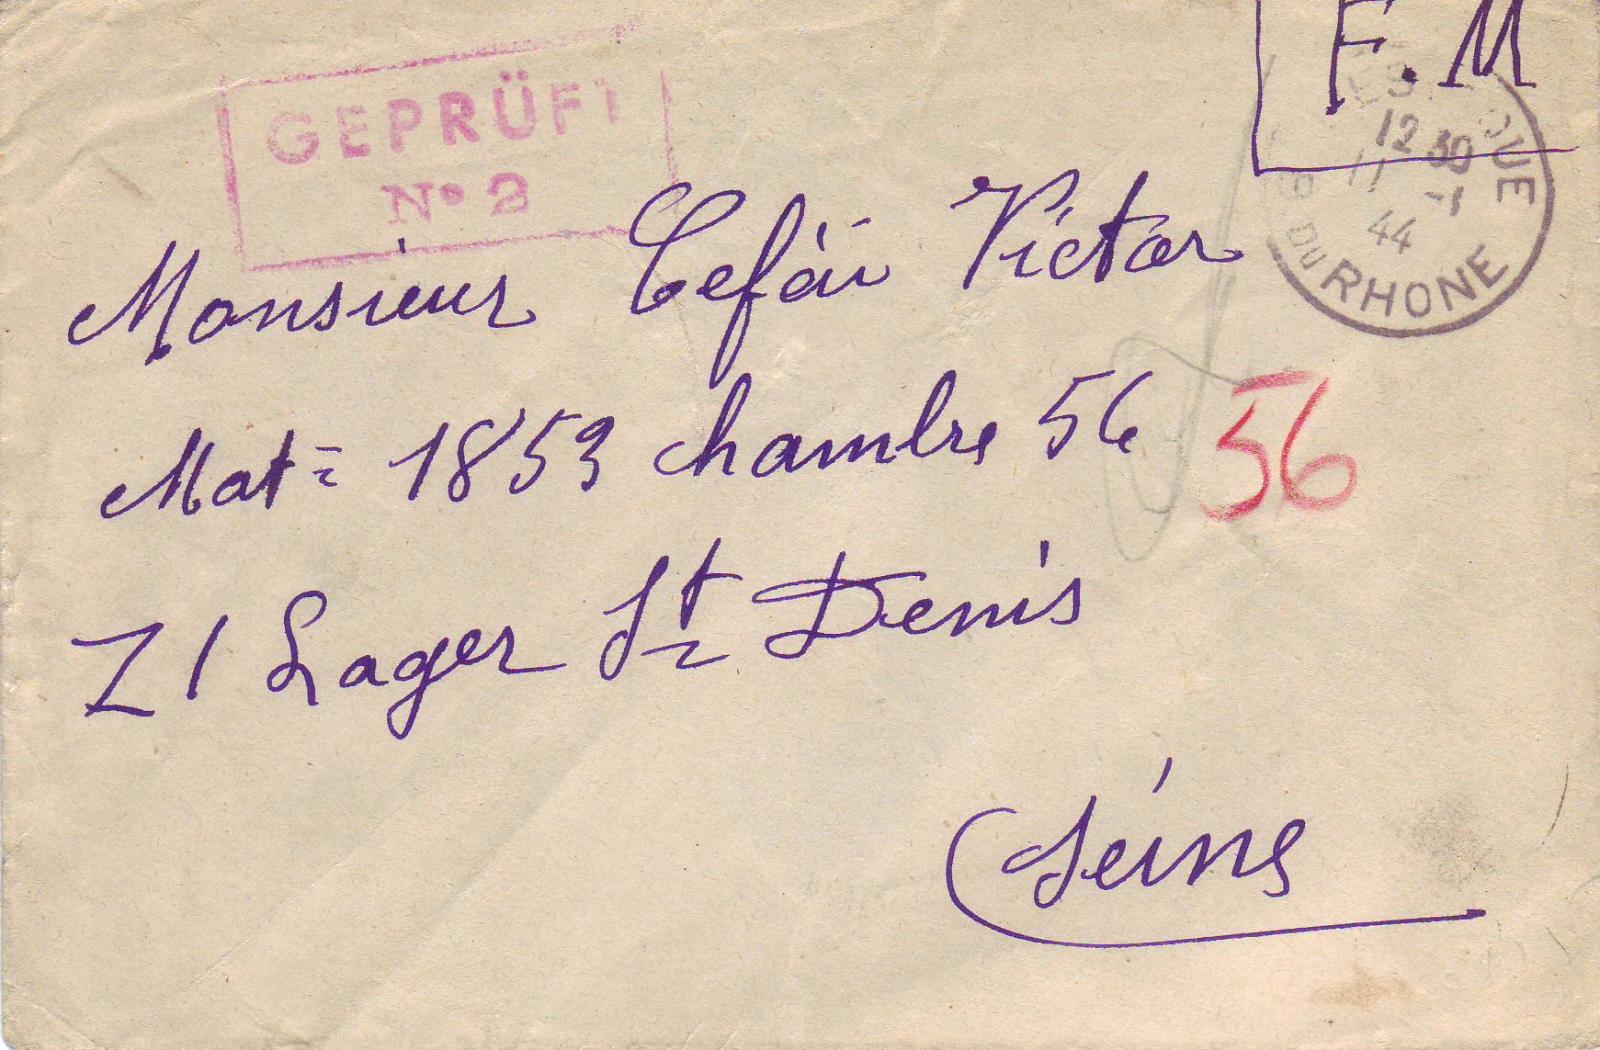 F.M
GEPRÜFT
No 2
12 30
11 -1
44
B DU RHONE
Monsieur Cefaï Victor
Mat= 1853 chambre 56
56
Z I Lager St Denis
Seine